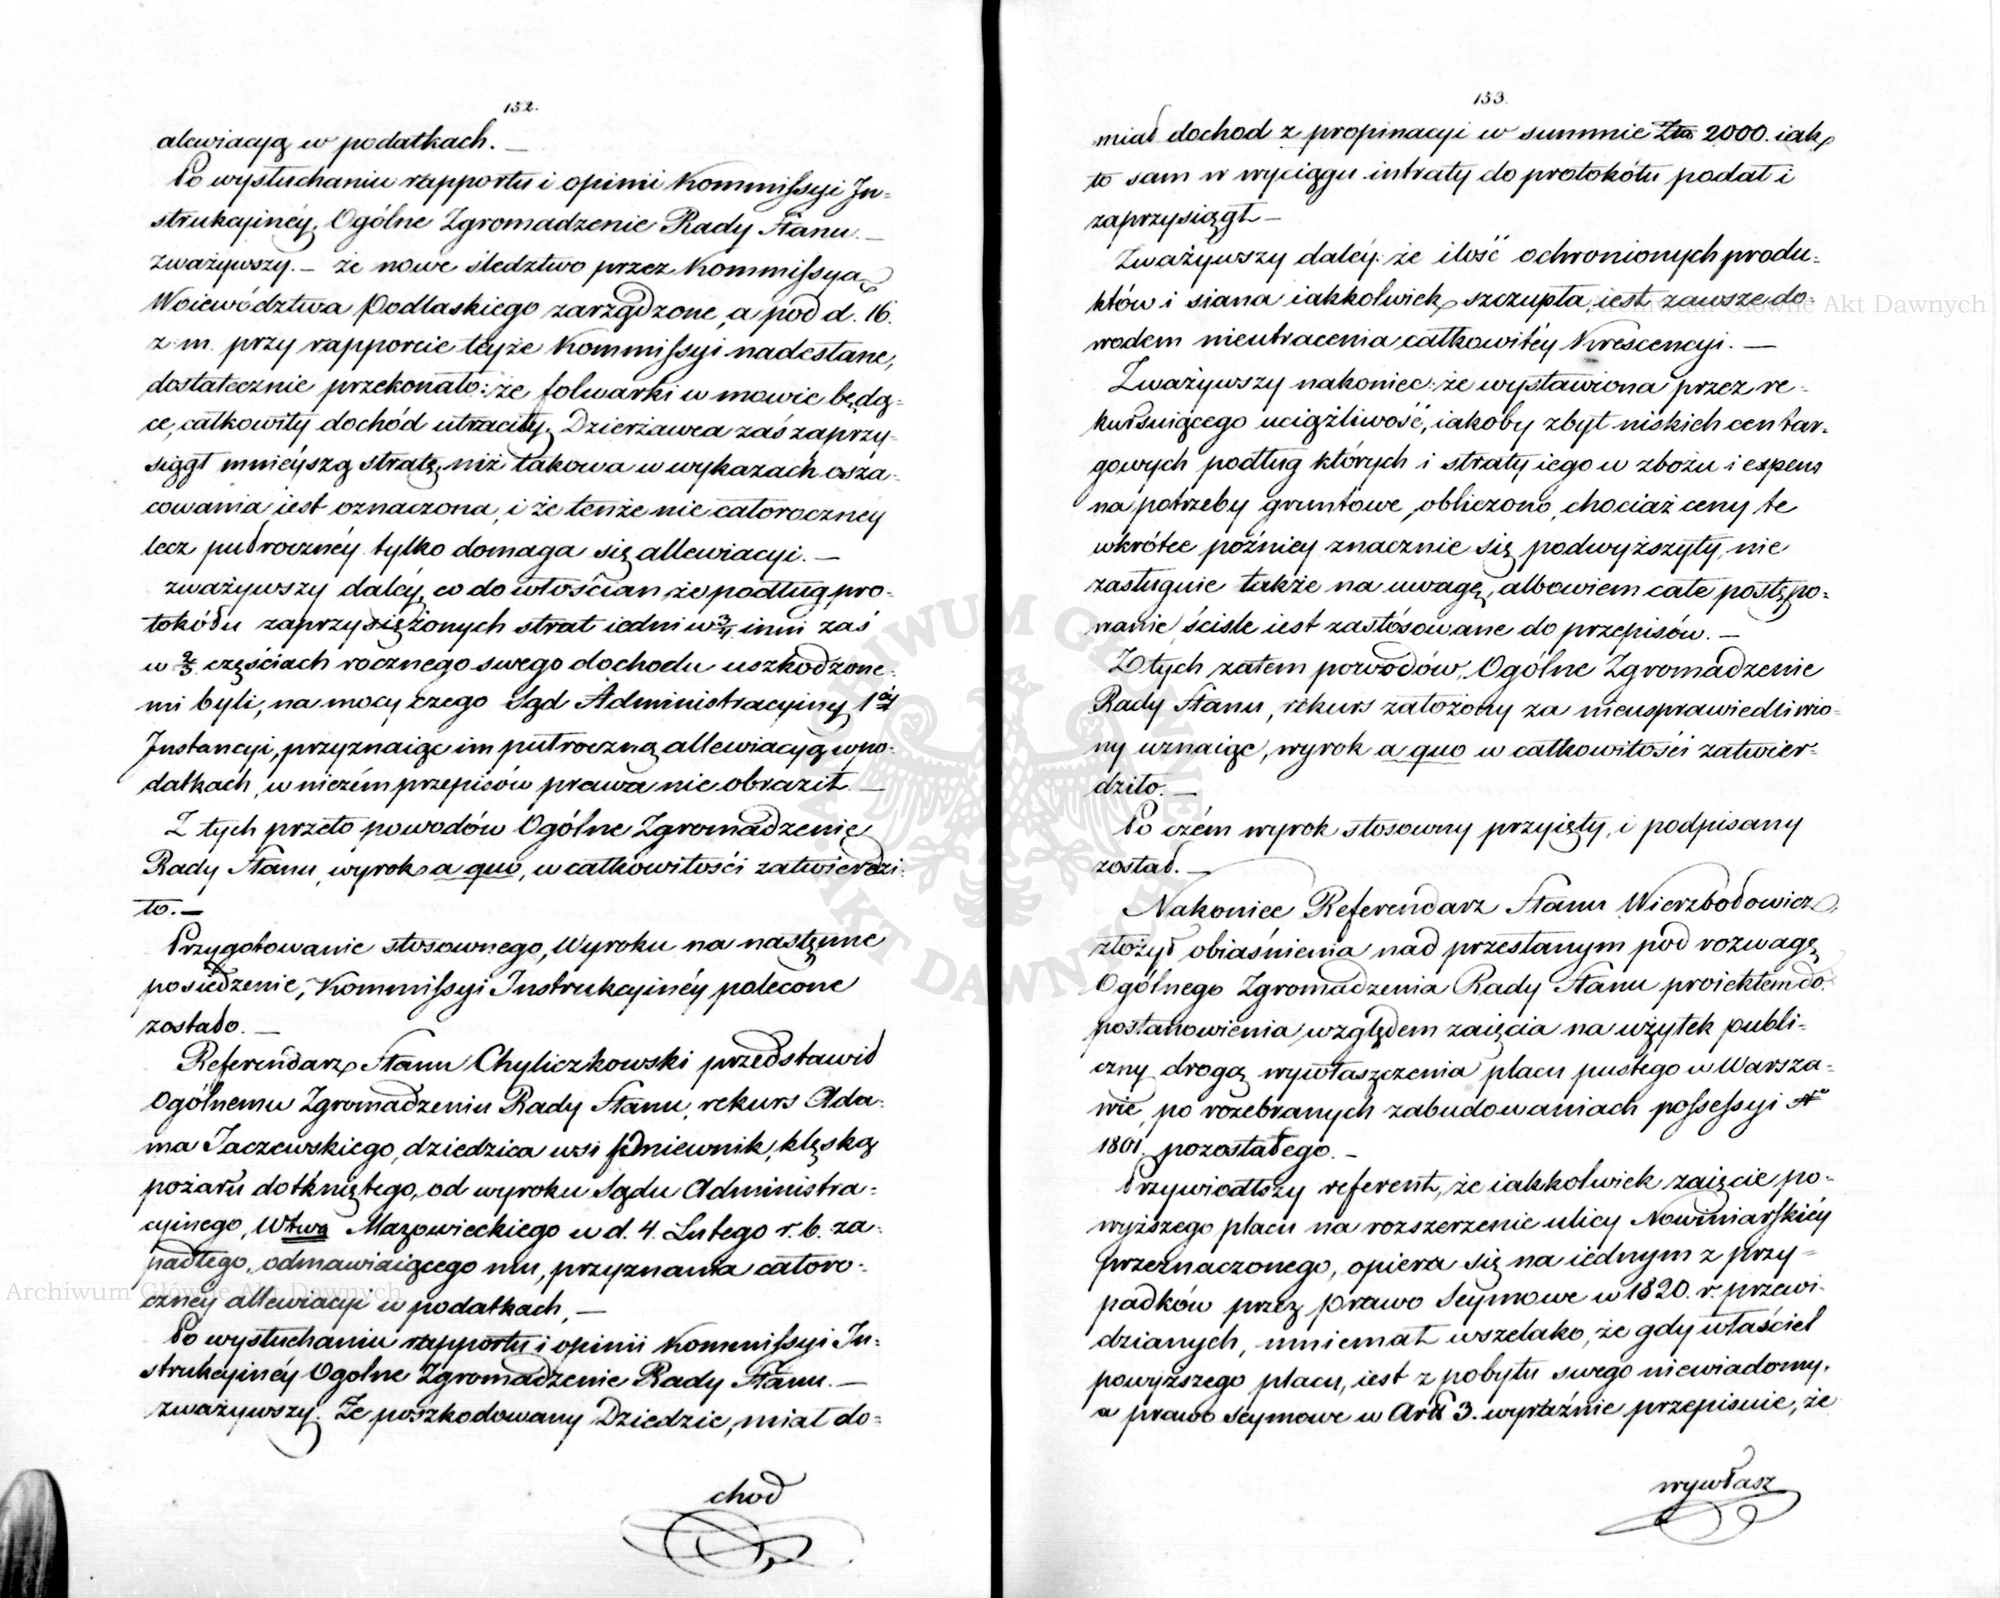 152.
alewiacyą w podatkach. —
Po wysłuchaniu rapportu i opinii Kommissyi In-
strukcyinéy, Ogólne Zgromadzenie Rady Stanu. —
zważywszy. — że nowe śledztwo przez Kommissyą
Woiewództwa Podlaskiego zarządzone, a pod d. 16.
z. m. przy rapporcie teyże Kommissyi nadesłane,
dostatecznie przekonało: że folwarki w mowie będą-
ce, całkowity dochód utraciły, Dzierżawca zaś zaprzy-
siągł mnieyszą stratę, niż takowa w wykazach osza-
cowania iest oznaczona, i że tenże nie całoroczney
lecz pułroczney tylko domaga się allewiacyi. —
zważywszy daléy, co do włościan że podług pro-
tokółu zaprzysiężonych strat iedni w 3/4 inni zaś
w 2/3 częściach rocznego swego dochodu uszkodzone-
mi byli, na mocy czego Sąd Administracyiny 1éy
Instancyi, przyznaiąc im pułroczną allewiacyą w po-
datkach, w niczém przepisów prawa nie obraził. —
Z tych przeto powodów Ogólne Zgromadzenie
Rady Stanu, wyrok a quo, w całkowitości zatwierdzi-
ło. —
Przygotowanie stosownego, Wyroku na następne
posiedzenie, Kommissyi Instrukcyinéy polecone
zostało. —
Referendarz Stanu Chyliczkowski przedstawił
Ogólnemu Zgromadzeniu Rady Stanu, rekurs Ada-
ma Jaczewskiego, dziedzica wsi Pniewnik, klęską
pożaru dotkniętego, od wyroku Sądu Administra-
cyinego, Wtwa Mazowieckiego w d. 4. Lutego r. b. za-
padłego, odmawiaiącego mu, przyznania całoro-
czney allewiacyi w podatkach, —
Po wysłuchaniu rapportu i opinii Kommissyi In-
strukcyinéy Ogolne Zgromadzenie Rady Stanu. —
zważywszy. Że poszkodowany Dziedzic, miał do-
chod
153.
miał dochod z propinacyi w summie Złp. 2000. iak
to sam w wyciągu intraty do protokółu podał i
zaprzysiągł —
Zważywszy daléy: że ilość ochronionych produ-
któw i siana iakkolwiek szczupła, iest zawsze do-
wodem nieutracenia całkowitéy Krescencyi. —
Zważywszy nakoniec: że wystawiona przez re-
kursuiącego uciążliwość, iakoby zbyt niskich cen tar-
gowych podług których i straty iego w zbożu i expens
na potrzeby gruntowe, obliczono, chociaż ceny te
wkrótce późniey znacznie się podwyższyły, nie
zasługuie także na uwagę, albowiem całe postępo-
wanie, ściśle iest zastósowane do przepisów. —
Z tych zatem powodów, Ogólne Zgromadzenie
Rady Stanu, rekurs założony za nieusprawiedliwio-
ny uznaiąc, wyrok a quo w całkowitości zatwier-
dziło. —
Po czém wyrok stosowny przyięty, i podpisany
został. —
Nakoniec Referendarz Stanu Wierzbołowicz,
złożył obiaśnienia nad przesłanym pod rozwagę
Ogólnego Zgromadzenia Rady Stanu proiektem do
postanowienia, względem zaięcia na użytek publi-
czny drogą wywłaszczenia placu pustego w Warsza-
wie, po rozebranych zabudowaniach possessyi No
1801. pozostałego. —
Przywiodłszy referent, że iakkolwiek zaięcie po-
wyższego placu na rozszerzenie ulicy Nowiniarskiéy
przeznaczonego, opiera się na iednym z przy-
padków przez prawo Seymowe w 1820. r. przewi-
dzianych, mniemał wszelako, że gdy właściciel
powyższego placu, iest z pobytu swego niewiadomy,
a prawo seymowe w Artt 3. wyraźnie przepisuie, że
wywłasz